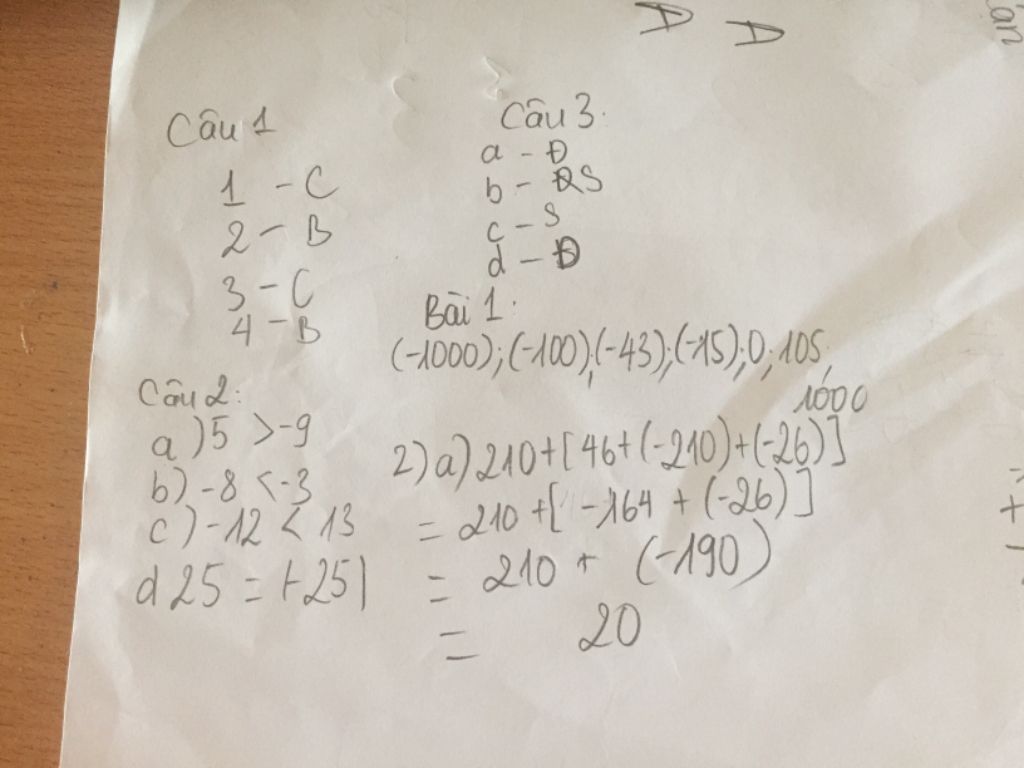 Câu 1
1 - C
2 - B
3 - C
4 - B
Câu 2:
a) 5 > -9
b) -8 < -3
c) -12 < 13
d 25 = |-25|
Câu 3:
a - Đ
b - S
c - S
d - Đ
Bài 1:
(-1000); (-100); (-43); (-15); 0; 105;
1000
2) a) 210 + [46 + (-210) + (-26)]
= 210 + [-164 + (-26)]
= 210 + (-190)
= 20